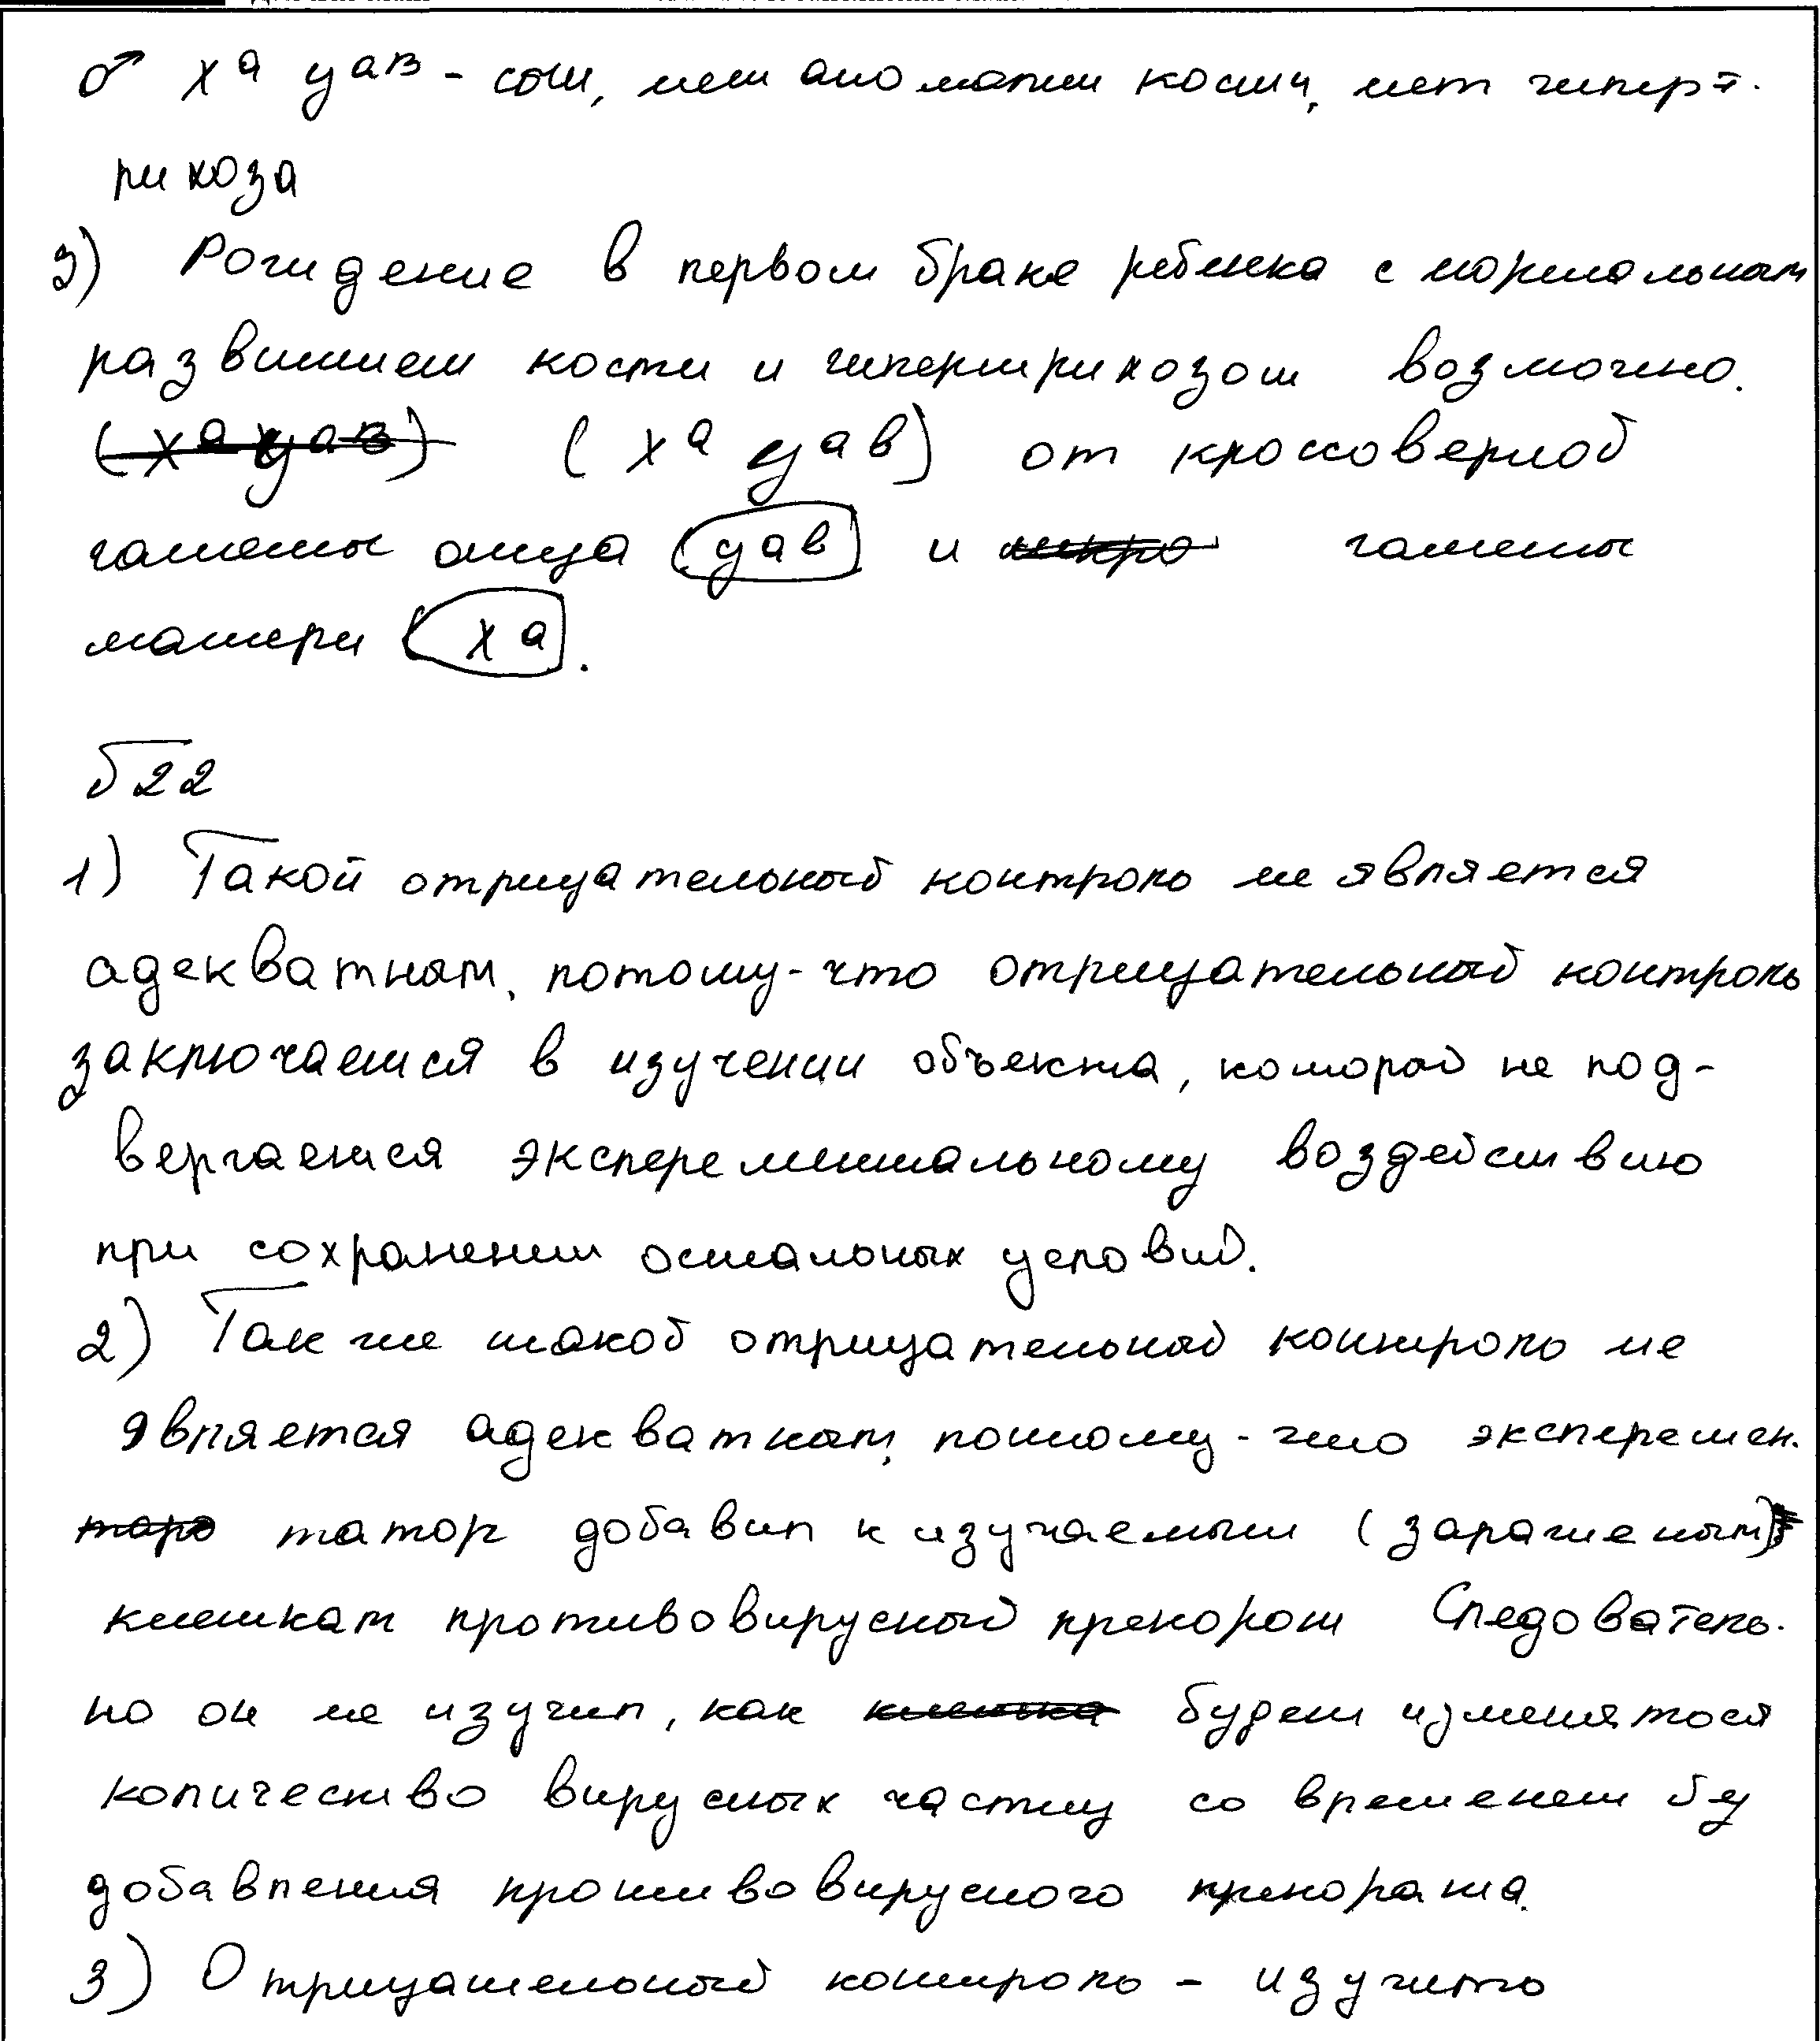 ♂ Xᵃ yᵃᴮ - сын, нет аномалии кости, нет гиперт-
рихоза
3) Рождение в первом браке ребенка с нормальным
развитием кости и гипертрихозом возможно.
(Xᵃ yᵃᵇ) от кроссоверной
гаметы отца (yᵃᵇ) и гаметы
матери (Xᵃ).
№22
1) Такой отрицательный контроль не является
адекватным, потому-что отрицательный контроль
заключается в изучении объекта, который не под-
вергается эксперементальному воздействию
при сохранении остальных условий.
2) Так же такой отрицательный контроль не
является адекватным, потому-что эксперемен-
татор добавил к изучаемым (зараженым)
клеткам противовирусный препарат Следователь-
но он не изучил, как будет изменяться
количество вирусных частиц со временем без
добавления противовирусного препарата.
3) Отрицательный контроль - изучить